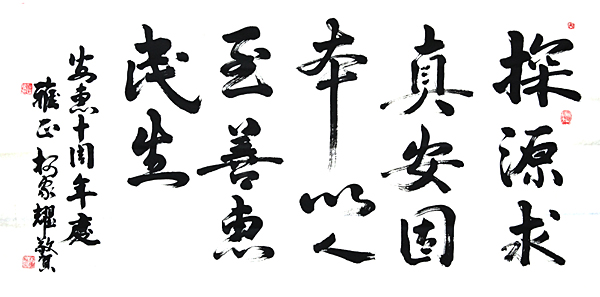 探源求
真安因
本以人
至善惠
民生
安惠十周年慶
雅正 柯家耀